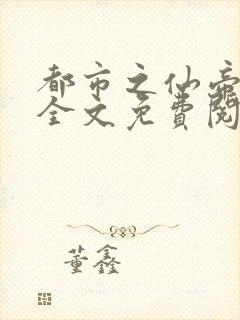 都市之仙帝
全文免費閱
董鑫